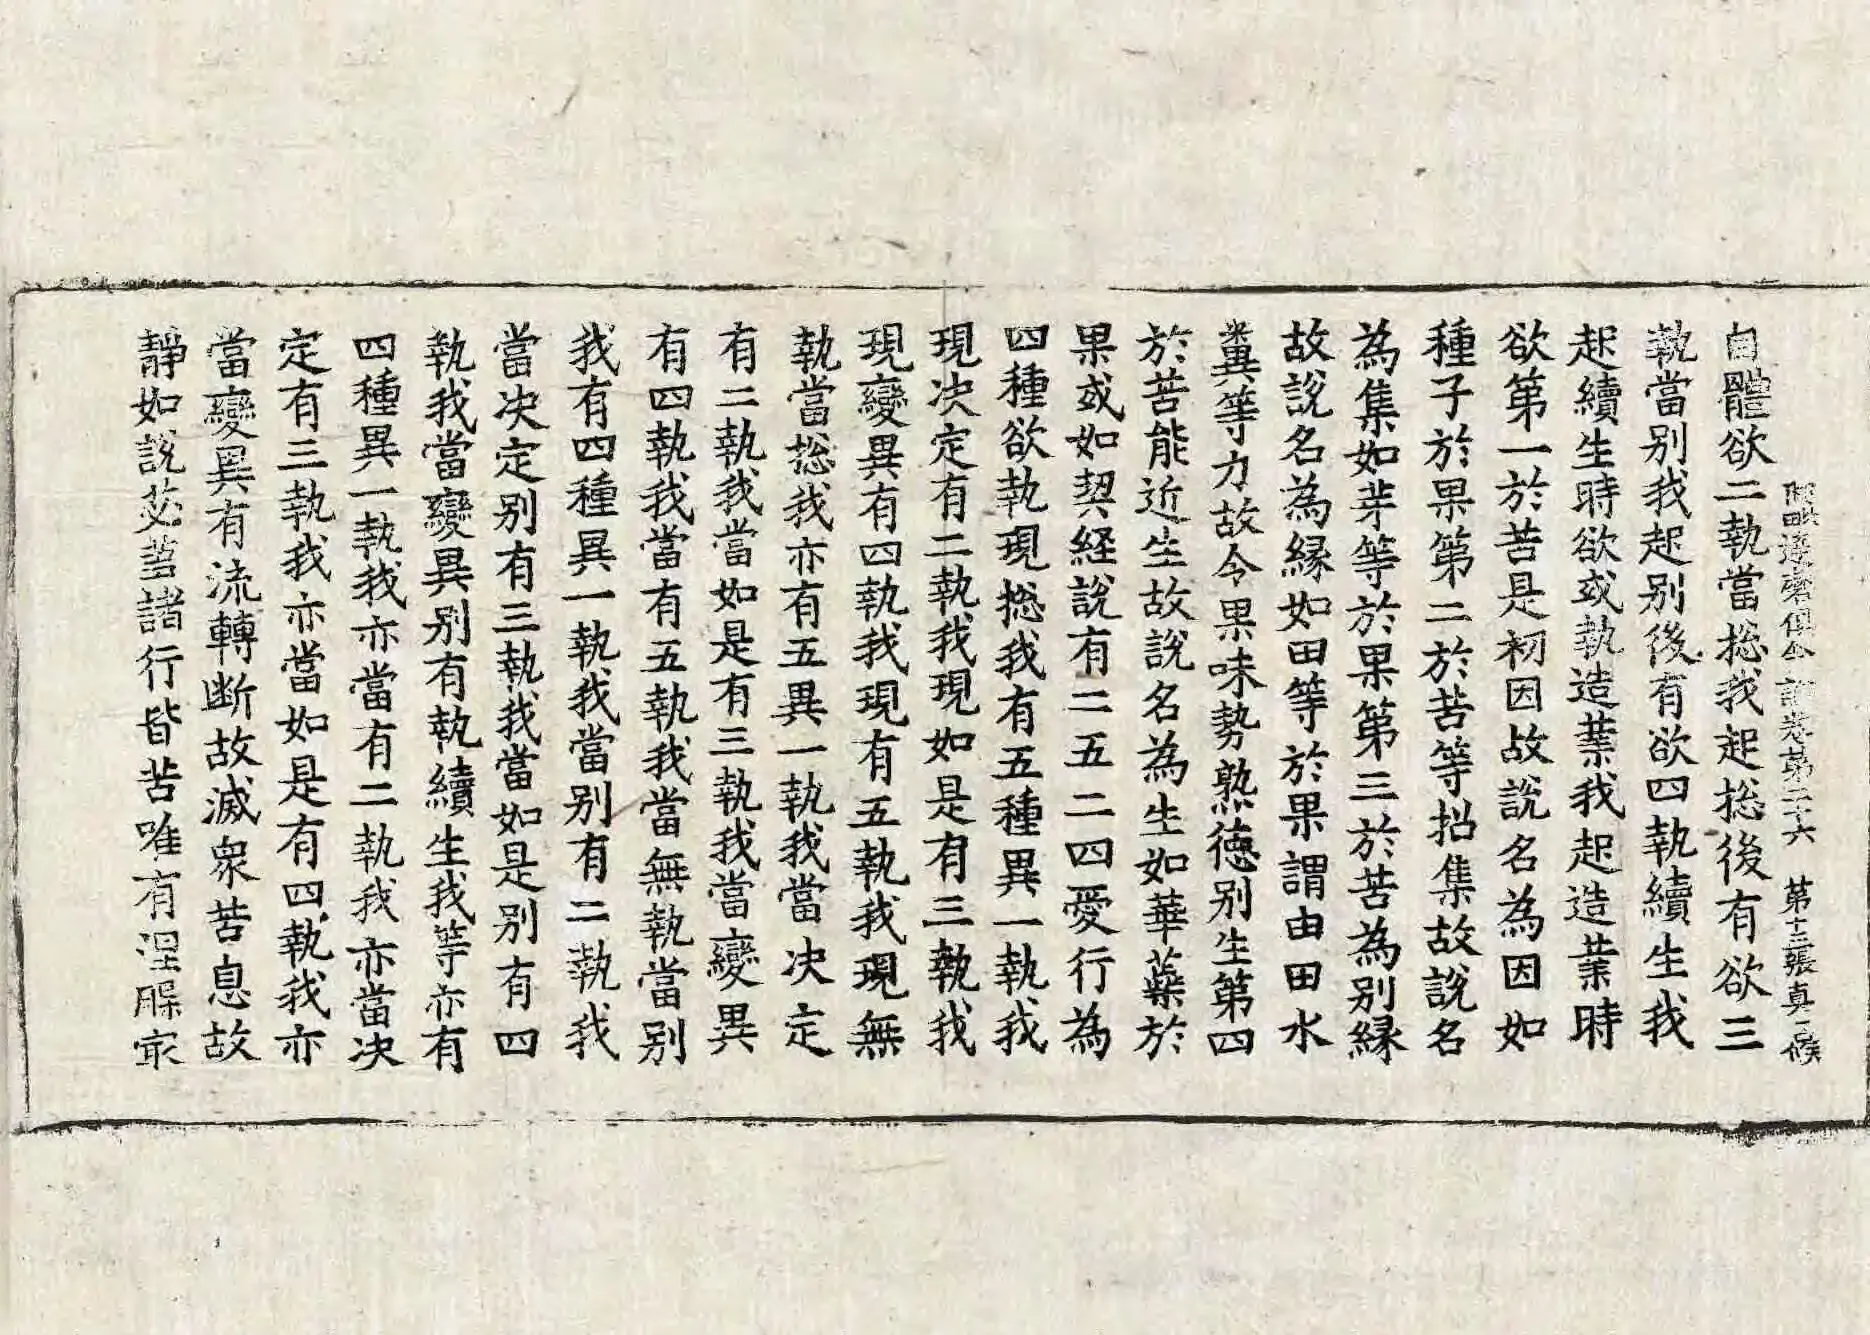 阿毗達磨俱舍論卷第二十六　第十三張　真侯
自體欲二執當捴我起捴後有欲三
執當別我起別後有欲四執續生我
起續生時欲或執造業我起造業時
欲第一於苦是初因故說名為因如
種子於果第二於苦等招集故說名
為集如芽等於果第三於苦為別緣
故說名為緣如田等於果謂由田水
糞等力故令果味勢熟德別生第四
於苦能近生故說名為生如華蘂於
果或如契經說有二五二四愛行為
四種欲執現捴我有五種異一執我
現決定有二執我現如是有三執我
現變異有四執我現有五執我現無
執當捴我亦有五異一執我當決定
有二執我當如是有三執我當變異
有四執我當有五執我當無執當別
我有四種異一執我當別有二執我
當決定別有三執我當如是別有四
執我當變異別有執續生我等亦有
四種異一執我亦當有二執我亦當決
定有三執我亦當如是有四執我亦
當變異有流轉斷故滅眾苦息故
靜如說苾芻諸行皆苦唯有涅槃㝡